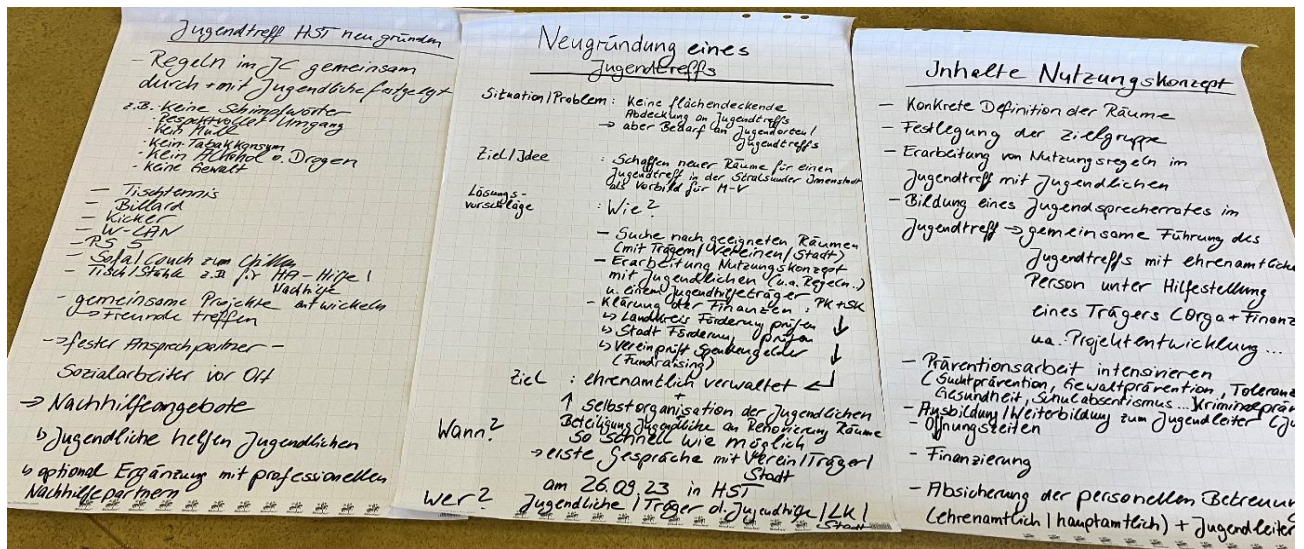 Jugendtreff HST neu gründen
- Regeln im JC gemeinsam
durch + mit Jugendliche festgelegt
z.B. · Keine Schimpfwörter
· Respektvoller Umgang
· Kein Müll
· Kein Tabakkonsum
· Kein Alkohol o. Drogen
· Keine Gewalt
- Tischtennis
- Billard
- Kicker
- W-LAN
- PS 5
- Sofa/Couch zum Chillen
- Tisch/Stühle z.B. für HA-Hilfe/
Nachhilfe
- gemeinsame Projekte entwickeln
-> Freunde treffen
-> fester Ansprechpartner -
Sozialarbeiter vor Ort
-> Nachhilfeangebote
↳ Jugendliche helfen Jugendlichen
↳ optional Ergänzung mit professionellen
Nachhilfepartnern
Neugründung eines
Jugendtreffs
Situation/Problem : Keine flächendeckende
Abdeckung an Jugendtreffs
-> aber Bedarf an Jugendorten/
Jugendtreffs
Ziel/Idee : Schaffen neuer Räume für einen
Jugendtreff in der Stralsunder Innenstadt
als Vorbild für M-V
Lösungs-
vorschläge : Wie?
- Suche nach geeigneten Räumen
(mit Trägern/Vereinen/Stadt)
- Erarbeitung Nutzungskonzept
mit Jugendlichen (u.a. Regeln..)
u. einem Jugendhilfeträger
- Klärung der Finanzen : PK + SK
↳ Landkreis Förderung prüfen ↓
↳ Stadt Förderung prüfen
↳ Verein prüft Spendengelder ↓
(Fundraising)
Ziel : ehrenamtlich verwaltet ↵
+
↑ Selbstorganisation der Jugendlichen
Beteiligung Jugendliche an Renovierung Räume
Wann? So schnell wie möglich
-> erste Gespräche mit Verein/Träger/
Stadt
am 26.09.23 in HST
Wer? Jugendliche/Träger d. Jugendhilfe/LK/
Stadt
Inhalte Nutzungskonzept
- Konkrete Definition der Räume
- Festlegung der Zielgruppe
- Erarbeitung von Nutzungsregeln im
Jugendtreff mit Jugendlichen
- Bildung eines Jugendsprecherrates im
Jugendtreff -> gemeinsame Führung des
Jugendtreffs mit ehrenamtliche
Person unter Hilfestellung
eines Trägers (Orga + Finanz
u.a. Projektentwicklung...
- Präventionsarbeit intensivieren
(Suchtprävention, Gewaltprävention, Toleranz
Gesundheit, Schulabsentismus... Kriminalprä
- Ausbildung/Weiterbildung zum Jugendleiter (Ju
- Öffnungszeiten
- Finanzierung
- Absicherung der personellen Betreuun
(ehrenamtlich/hauptamtlich) + Jugendleiter